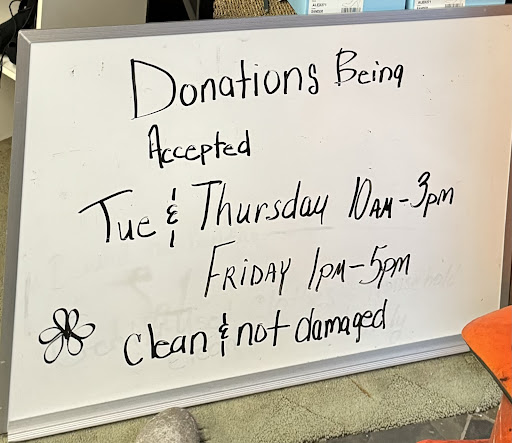 Donations Being
Accepted
Tue & Thursday 10AM-3pm
FRIDAY 1PM-5PM
clean & not damaged